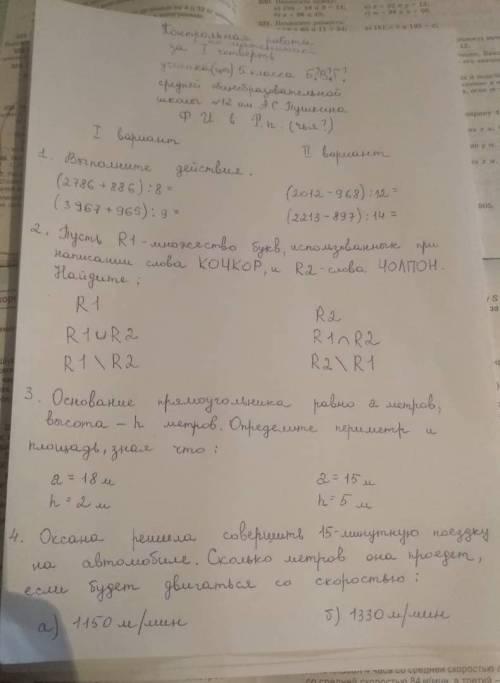 Контрольная работа
по математике
за I четверть
5 класса Б, В, Г
средней общеобразовательной
школы №12 им. А.С. Пушкина
Ф. И в Р.п. (чья?)
I вариант II вариант
1. Выполните действия.
(2786 + 886) : 8 = (2012 - 968) : 12 =
(3967 + 965) : 9 = (2213 - 897) : 14 =
2. Пусть R1 - множество букв, использованных при
написании слова КОЧКОР, и R2 - слова ЧОЛПОН.
Найдите:
R1 R2
R1 ∪ R2 R1 ∩ R2
R1 \ R2 R2 \ R1
3. Основание прямоугольника равно a метров,
высота - h метров. Определите периметр и
площадь, зная что:
a = 18 м a = 15 м
h = 2 м h = 5 м
4. Оксана решила совершить 15-минутную поездку
на автомобиле. Сколько метров она проедет,
если будет двигаться со скоростью:
а) 1150 м/мин б) 1330 м/мин